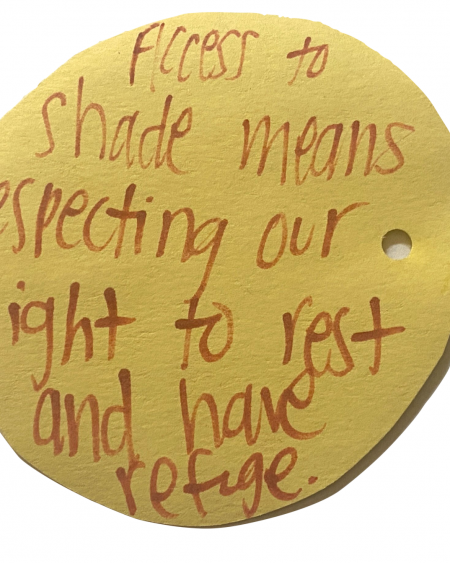 Access to
shade means
especting our
ight to rest
and have
refuge.